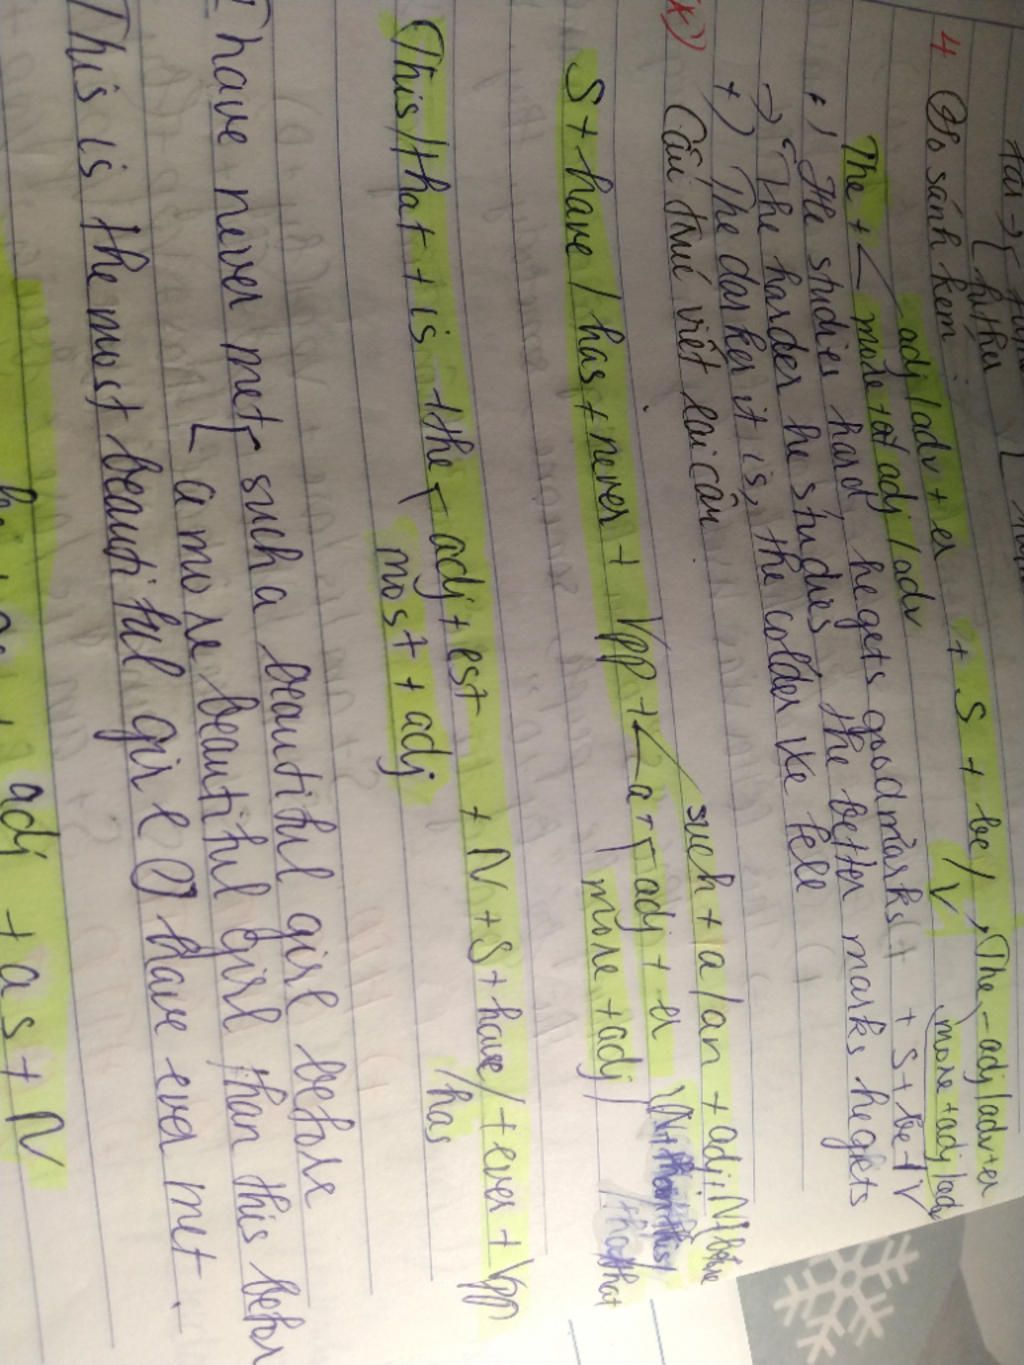 4 So sánh kém
adj/adv + er
The + more + adj/adv + S + be/V, The adj/adv + er
more + adj/adv + S + be + V
+) He studies hard he gets good marks
-) The harder he studies the better marks he gets
+) The darker it is, the colder we feel
*) Cấu trúc viết lại câu
such + a/an + adj + N + before
S + have / has + never + Vpp + a + adj + er N + than this/
more + adj than that
This/that + is + the adj + est + N + S + have/ + ever + Vpp
most + adj /has
I have never met such a beautiful girl before
a more beautiful girl than this before
This is the most beautiful girl I have ever met.
adj + as + N